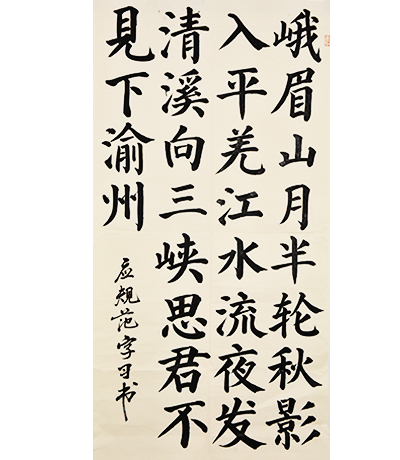 峨眉山月半轮秋影
入平羌江水流夜发
清溪向三峡思君不
見下渝州
应规范字日书